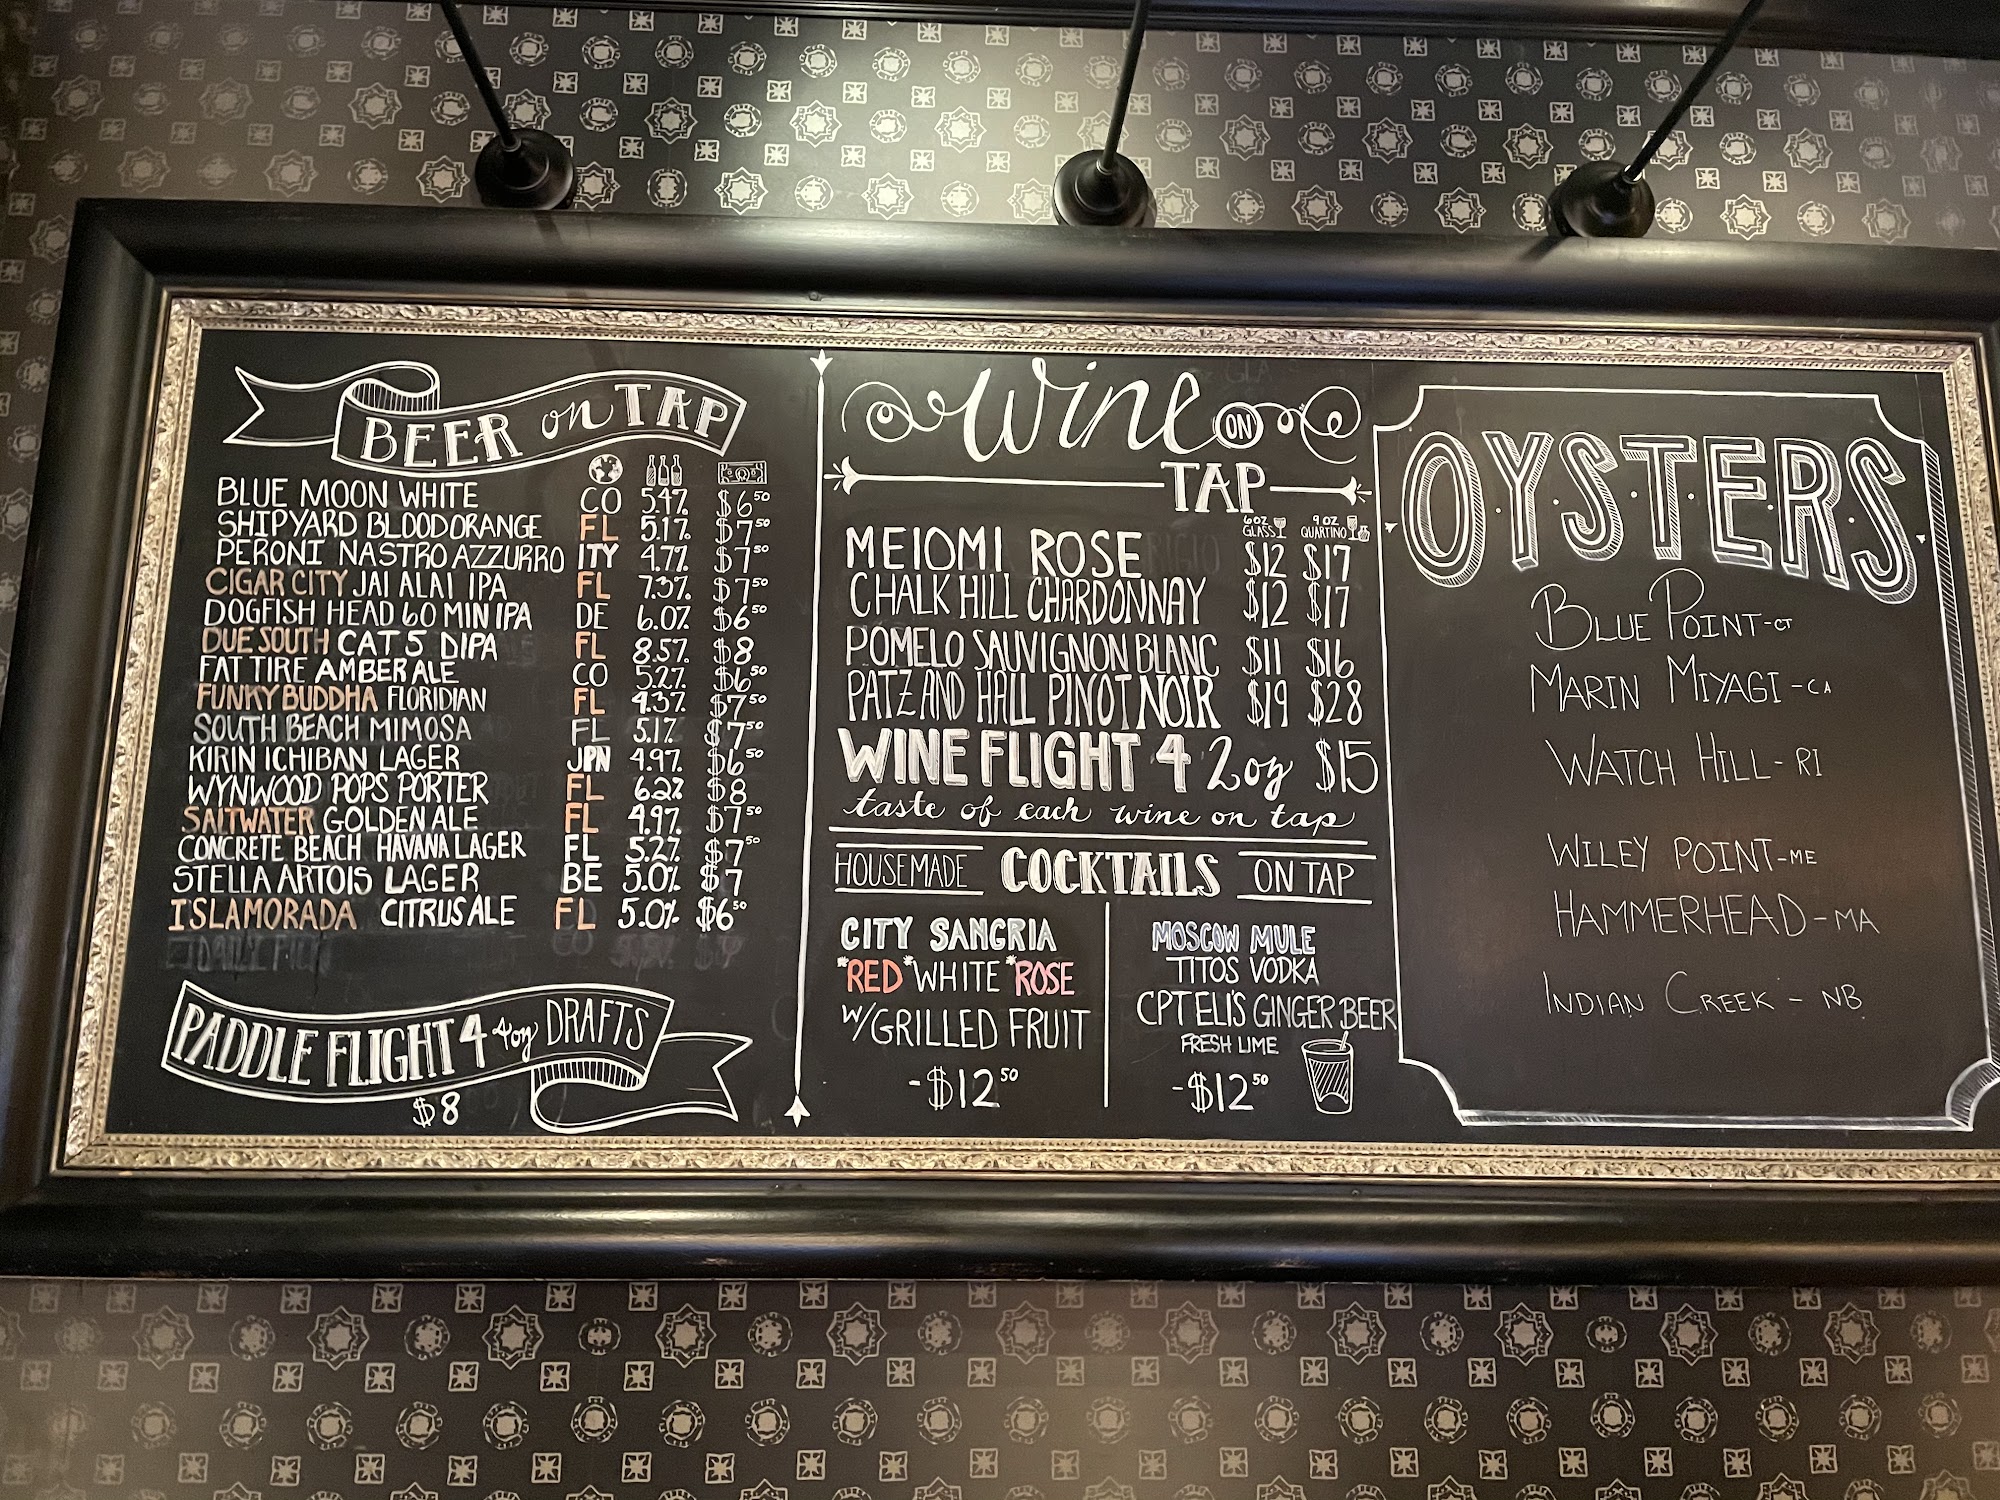 BEER on TAP
BLUE MOON WHITE CO 5.4% $6⁵⁰
SHIPYARD BLOOD ORANGE FL 5.1% $7⁵⁰
PERONI NASTRO AZZURRO ITY 4.7% $7⁵⁰
CIGAR CITY JAI ALAI IPA FL 7.3% $7⁵⁰
DOGFISH HEAD 60 MIN IPA DE 6.0% $6⁵⁰
DUE SOUTH CAT 5 DIPA FL 8.5% $8
FAT TIRE AMBER ALE CO 5.2% $6⁵⁰
FUNKY BUDDHA FLORIDIAN FL 4.3% $7⁵⁰
SOUTH BEACH MIMOSA FL 5.1% $7⁵⁰
KIRIN ICHIBAN LAGER JPN 4.9% $6⁵⁰
WYNWOOD POPS PORTER FL 6.2% $8
SALTWATER GOLDEN ALE FL 4.9% $7⁵⁰
CONCRETE BEACH HAVANA LAGER FL 5.2% $7⁵⁰
STELLA ARTOIS LAGER BE 5.0% $7
ISLAMORADA CITRUS ALE FL 5.0% $6⁵⁰
PADDLE FLIGHT 4 4oz DRAFTS
$8
Wine ON
TAP
6 OZ GLASS 9 OZ QUARTINO
MEIOMI ROSE $12 $17
CHALK HILL CHARDONNAY $12 $17
POMELO SAUVIGNON BLANC $11 $16
PATZ AND HALL PINOT NOIR $19 $28
WINE FLIGHT 4 2oz $15
taste of each wine on tap
HOUSEMADE COCKTAILS ON TAP
CITY SANGRIA
*RED *WHITE *ROSE
W/GRILLED FRUIT
-$12⁵⁰
MOSCOW MULE
TITOS VODKA
CPT ELI'S GINGER BEER
FRESH LIME
-$12⁵⁰
OYSTERS
BLUE POINT-CT
MARIN MIYAGI-CA
WATCH HILL-RI
WILEY POINT-ME
HAMMERHEAD-MA
INDIAN CREEK - NB